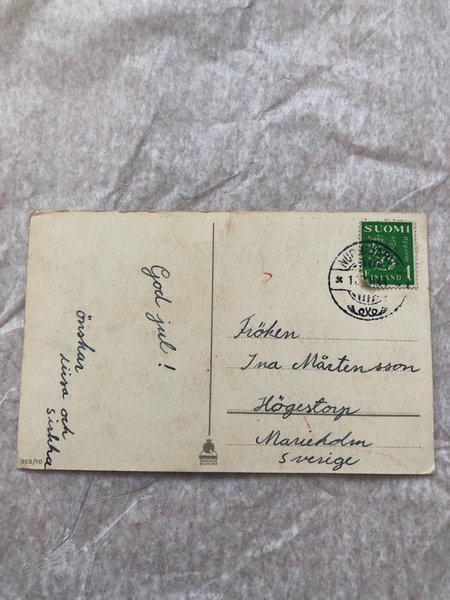 God jul!
önskar
Liisa och
Sirkka
223/10
SUOMI
FINLAND 1
Fröken
Ina Mårtensson
Högestorp
Marieholm
Sverige